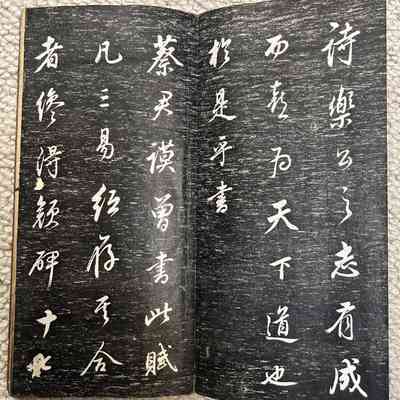 詩樂公之志有成
而喜為天下道也
於是乎書
蔡君謨曾書此賦
凡三易紙存其合
者得顏碑十